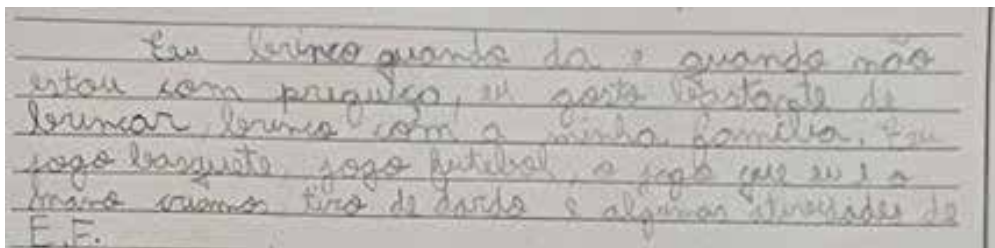 Eu brinco quando da e quando não
estou com preguiça, eu gosto bastante de
brincar, brinco com a minha família. Eu
jogo basquete, jogo futebol, o jogo que eu e o
mano criamos tiro de dardo e algumas atividades de
E.F.